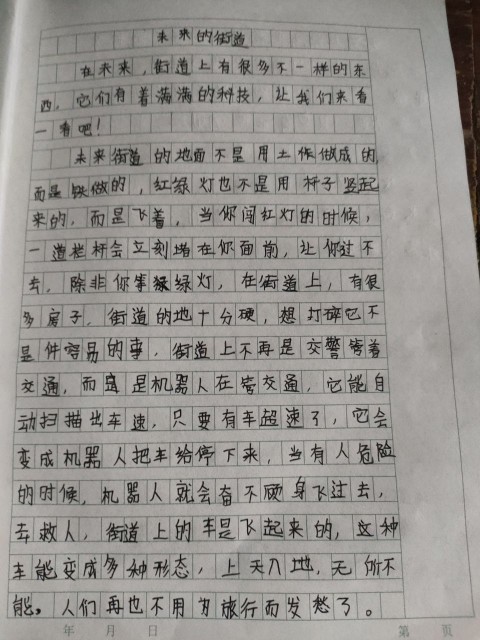 未来的街道
在未来，街道上有很多不一样的东
西，它们有着满满的科技，让我们来看
一看吧！
未来街道的地面不是用土做做成的，
而是铁做的，红绿灯也不是用杆子竖起
来的，而是飞着，当你闯红灯的时候，
一道栏杆会立刻堵在你面前，让你过不
去，除非你等绿绿灯，在街道上，有很
多房子，街道的地十分硬，想打碎它不
是件容易的事，街道上不再是交警管着
交通，而是机器人在管交通，它能自
动扫描出车速，只要有车超速了，它会
变成机器人把车给停下来，当有人危险
的时候，机器人就会奋不顾身飞过去，
去救人，街道上的车是飞起来的，这种
车能变成多种形态，上天入地，无所不
能，人们再也不用为旅行而发愁了。
年 月 日 第 页